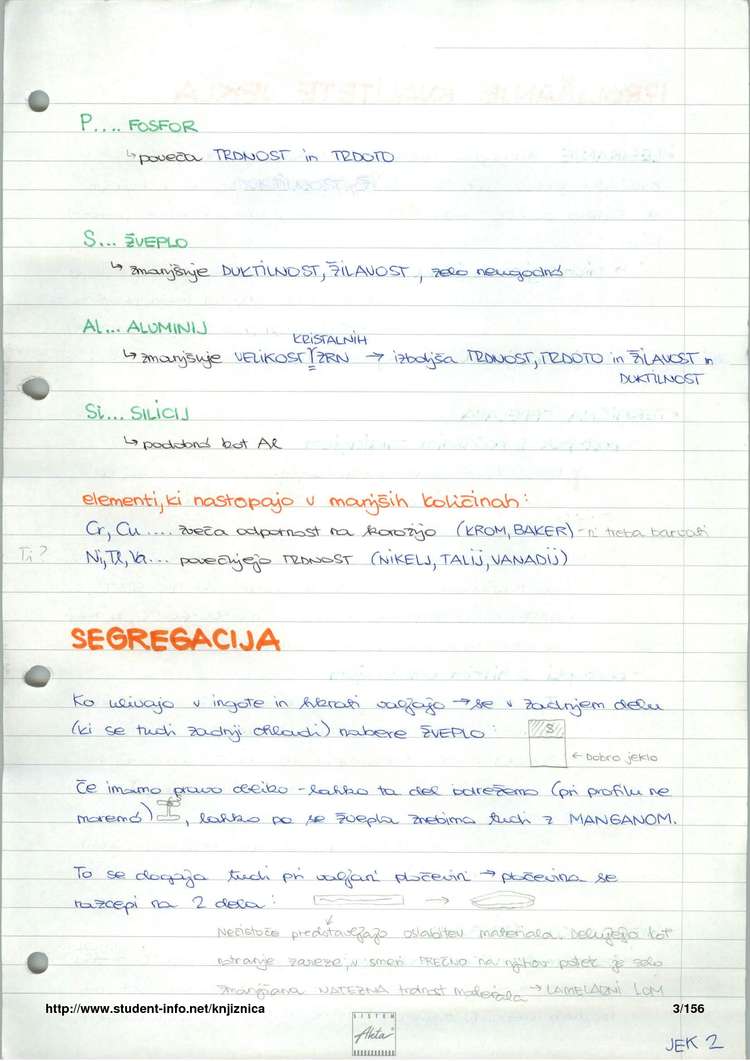 P.... FOSFOR
↳ poveča TRDNOST in TRDOTO
S... ŽVEPLO
↳ zmanjšuje DUKTILNOST, ŽILAVOST, zelo neugodno
Al... ALUMINIJ
KRISTALNIH
↳ zmanjšuje VELIKOST ZRN → izboljša TRDNOST, TRDOTO in ŽILAVOST in
DUKTILNOST
Si... SILICIJ
↳ podobno kot Al
elementi, ki nastopajo v manjših količinah:
Cr, Cu.... zveča odpornost na korozijo (KROM, BAKER) - ni treba barvati
Ti?
Ni, Tl, Va... povečujejo TRDNOST (NIKELJ, TALIJ, VANADIJ)
SEGREGACIJA
Ko ulivajo v ingote in hkrati valjajo → se v zadnjem delu
(ki se tudi zadnji ohladi) nabere ŽVEPLO:
S
← Dobro jeklo
Če imamo pravo obliko - lahko ta del odrežemo (pri profilu ne
moremo), lahko pa se žvepla znebimo tudi z MANGANOM.
To se dogaja tudi pri valjani pločevini → pločevina se
razcepi na 2 dela: →
Nečistoče predstavljajo oslabitev materiala. Delujejo kot
notranje zareze, v smeri PREČNO na njihov potek je zelo
zmanjšana NATEZNA trdnost materiala → LAMELARNI LOM
http://www.student-info.net/knjiznica
3/156
SISTEM
Akta
JEK 2